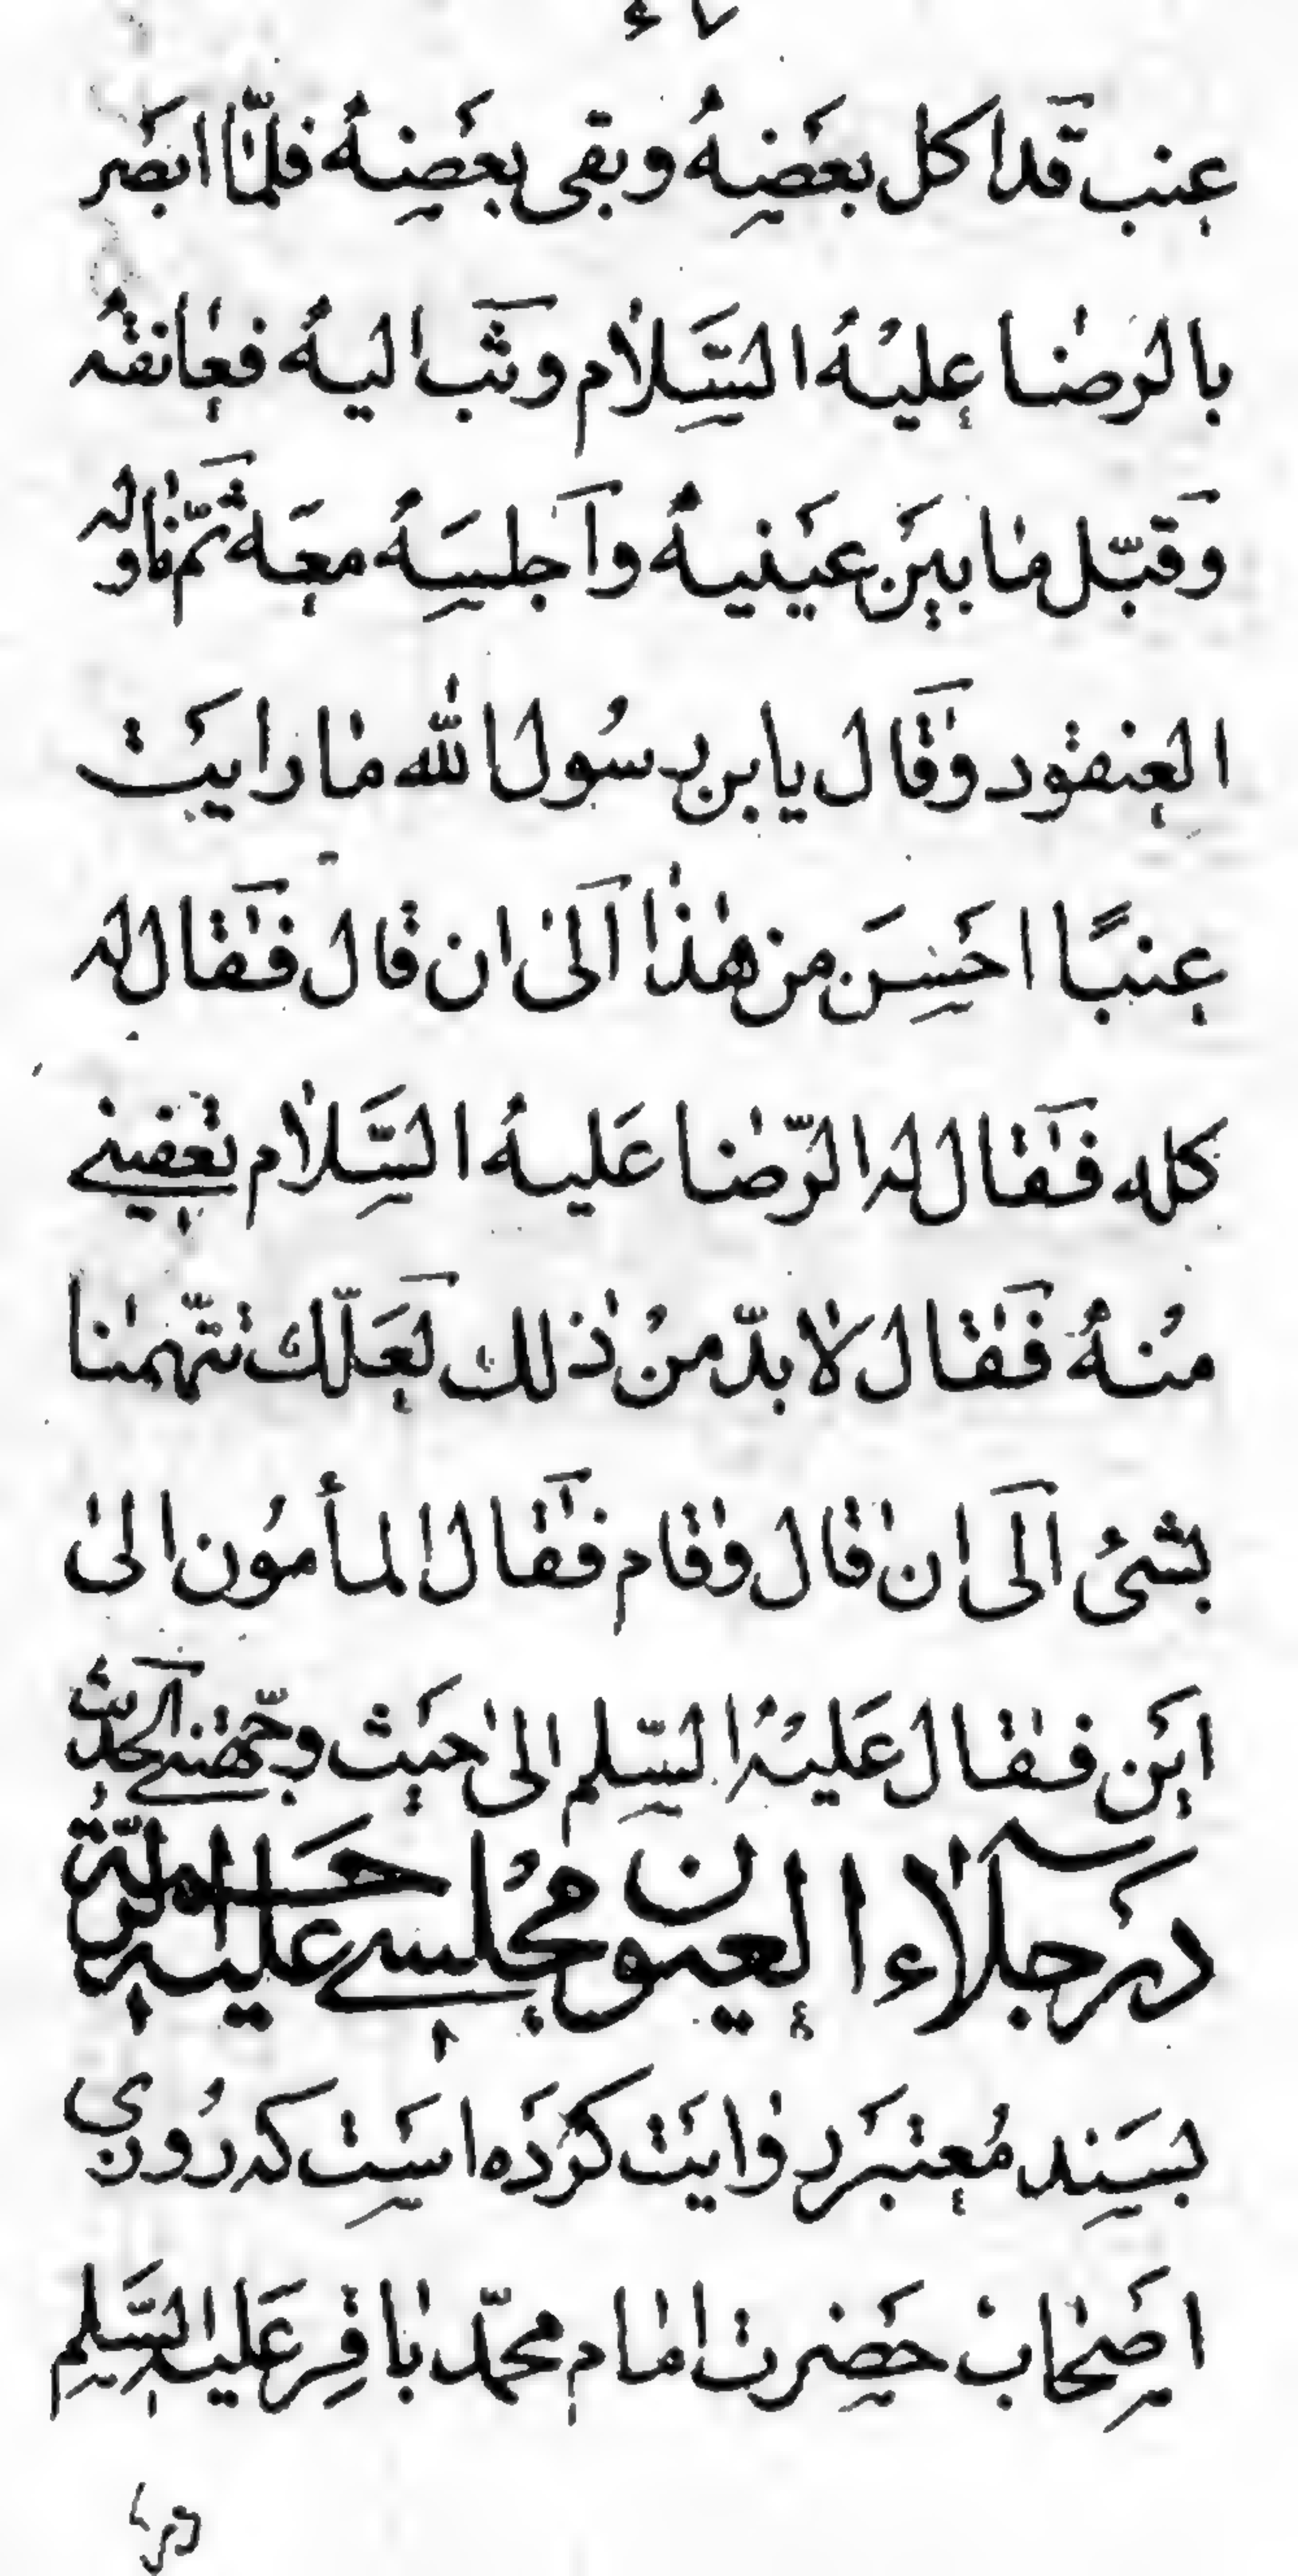 عنب قد اكل بعضه وبقى بعضه فلمّا ابصر
بالرضا عليه السّلام وثب اليه فعانقه
وقبّل ما بين عينيه واجلسه معه ثمّ ناوله
العنقود وقال يابن رسول الله ما رايت
عنبًا احسن من هذا الى ان قال فقال له
كله فقال له الرّضا عليه السّلام تعفينى
منه فقال لا بدّ من ذلك لعلّك تتّهمنا
بشئ الى ان قال وقام فقال المأمون الى
اين فقال عليه السّلم الى حيث وجّهتنى الحديث
در جلاء العيون مجلسى عليه الرّحمة
بسند معتبر روايت كرده است كه روزى
اصحاب حضرت امام محمّد باقر عليه السّلم
در